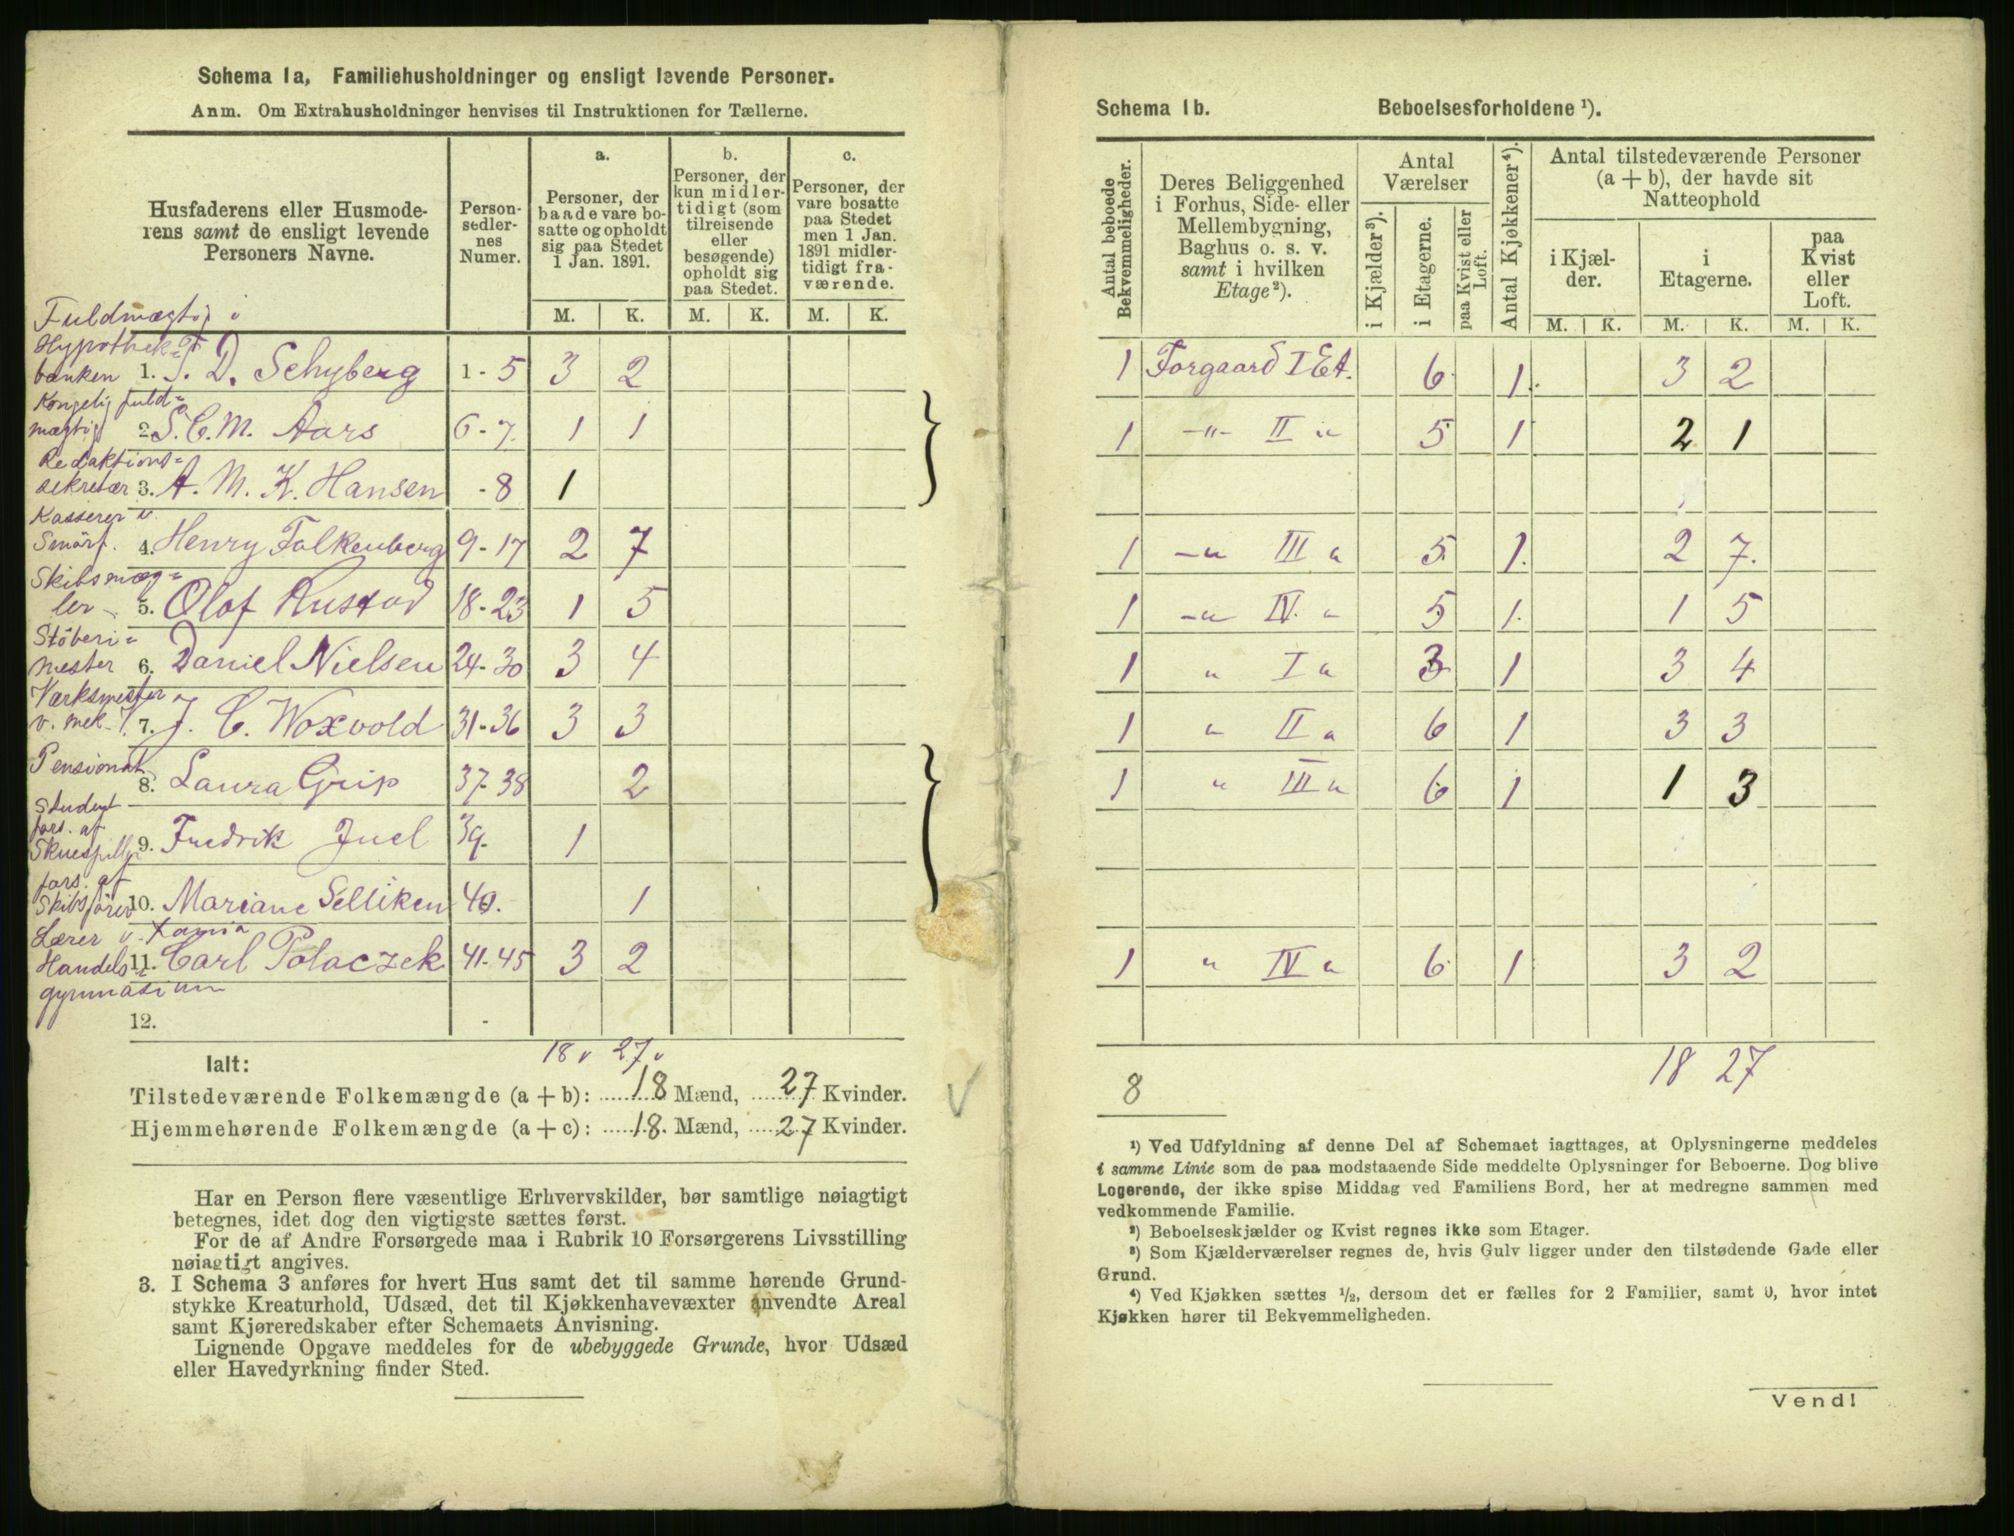 Schema 1a, Familiehusholdninger og ensligt levende Personer.
Anm. Om Extrahusholdninger henvises til Instruktionen for Tællerne.
Husfaderens eller Husmode-
rens samt de ensligt levende
Personers Navne.
Person-
sedler-
nes
Numer.
a.
Personer, der
baade vare bo-
satte og opholdt
sig paa Stedet
1 Jan. 1891.
b.
Personer, der
kun midler-
tidigt (som
tilreisende
eller
besøgende)
opholdt sig
paa Stedet.
c.
Personer, der
vare bosatte
paa Stedet
men 1 Jan.
1891 midler-
tidigt fra-
værende.
M. K. M. K. M. K.
Fuldmægtig i
Hypothek=
banken 1. T. D. Schyberg 1 - 5 3 2
Kongelig fuld=
mægtig 2. S. C. M. Aars 6 - 7. 1 1
Redaktions=
sekretær 3. A. M. K. Hansen - 8 1
Kasserer i
Smörf. 4. Henry Falkenberg 9 - 17 2 7
Skibsmæg=
ler 5. Olaf Rustad 18 - 23 1 5
Stöberi=
mester 6. Daniel Nielsen 24 - 30 3 4
Værksmester
v. mek. 7. J. C. Woxvold 31 - 36 3 3
Pensionat
8. Laura Grip 37 - 38 2
Student
fors. af
Skuespiller 9. Fredrik Juel 39. 1
fors. af
Skibsförer 10. Mariane Selliken 40. 1
Lærer v. Xania
Handels= 11. Carl Polaczek 41 - 45 3 2
gymnasium
12. -
18 v 27 v
Ialt:
Tilstedeværende Folkemængde (a + b): 18 Mænd, 27 Kvinder.
Hjemmehørende Folkemængde (a + c): 18. Mænd, 27 Kvinder.
Har en Person flere væsentlige Erhvervskilder, bør samtlige nøiagtigt
betegnes, idet dog den vigtigste sættes først.
For de af Andre Forsørgede maa i Rubrik 10 Forsørgerens Livsstilling
nøiagtigt angives.
3. I Schema 3 anføres for hvert Hus samt det til samme hørende Grund-
stykke Kreaturhold, Udsæd, det til Kjøkkenhavevæxter anvendte Areal
samt Kjøreredskaber efter Schemaets Anvisning.
Lignende Opgave meddeles for de ubebyggede Grunde, hvor Udsæd
eller Havedyrkning finder Sted.
Schema 1b. Beboelsesforholdene ¹).
Antal beboede
Bekvemmeligheder.
Deres Beliggenhed
i Forhus, Side- eller
Mellembygning,
Baghus o. s. v.
samt i hvilken
Etage²).
Antal
Værelser
i Kjælder³).
i Etagerne.
paa Kvist eller
Loft.
Antal Kjøkkener⁴).
Antal tilstedeværende Personer
(a + b), der havde sit
Natteophold
i Kjæl-
der.
i
Etagerne.
paa
Kvist
eller
Loft.
M. K. M. K. M. K.
1 Forgaard I Et. 6 1. 3 2
1 -"- II " 5 1 2 1
1 -" III " 5 1. 2 7.
1 -" IV. " 5 1. 1 5
1 " I " 3 1 3 4
1 " II " 6 1 3 3
1 " III " 6 1 1 3
1 " IV " 6 1 3 2
18 27
8
¹) Ved Udfyldning af denne Del af Schemaet iagttages, at Oplysningerne meddeles
i samme Linie som de paa modstaaende Side meddelte Oplysninger for Beboerne. Dog blive
Logerende, der ikke spise Middag ved Familiens Bord, her at medregne sammen med
vedkommende Familie.
²) Beboelseskjælder og Kvist regnes ikke som Etager.
³) Som Kjælderværelser regnes de, hvis Gulv ligger under den tilstødende Gade eller
Grund.
⁴) Ved Kjøkken sættes ½, dersom det er fælles for 2 Familier, samt 0, hvor intet
Kjøkken hører til Bekvemmeligheden.
Vend!